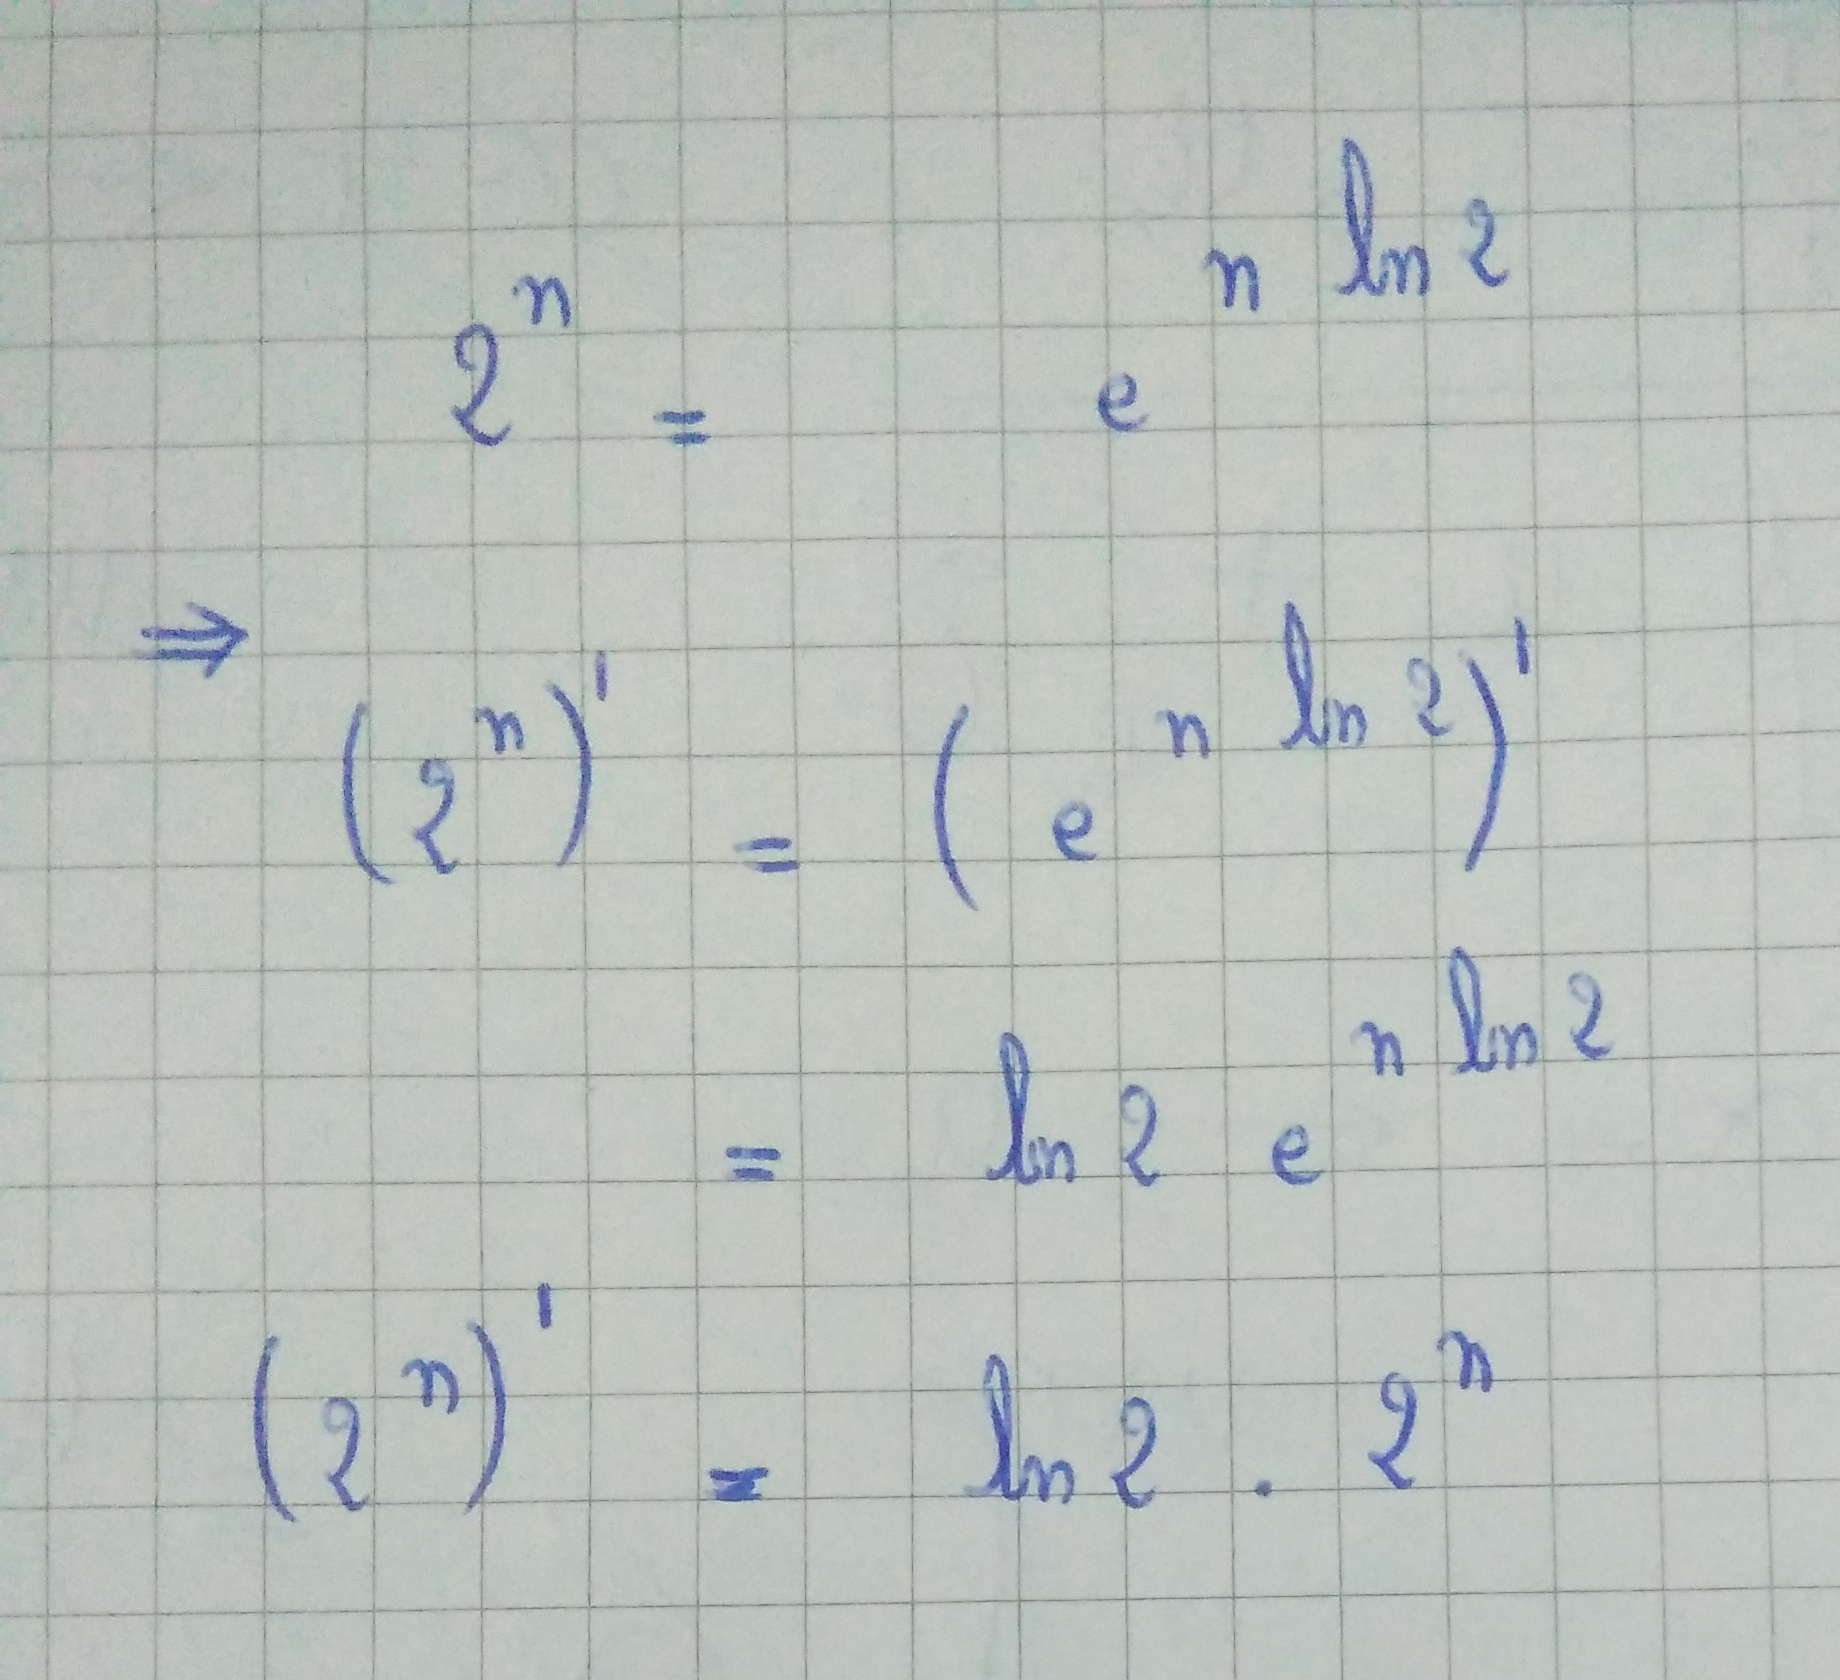 2ⁿ = e^(n ln 2)
⇒
(2ⁿ)' = (e^(n ln 2))'
= ln 2 e^(n ln 2)
(2ⁿ)' = ln 2 . 2ⁿ